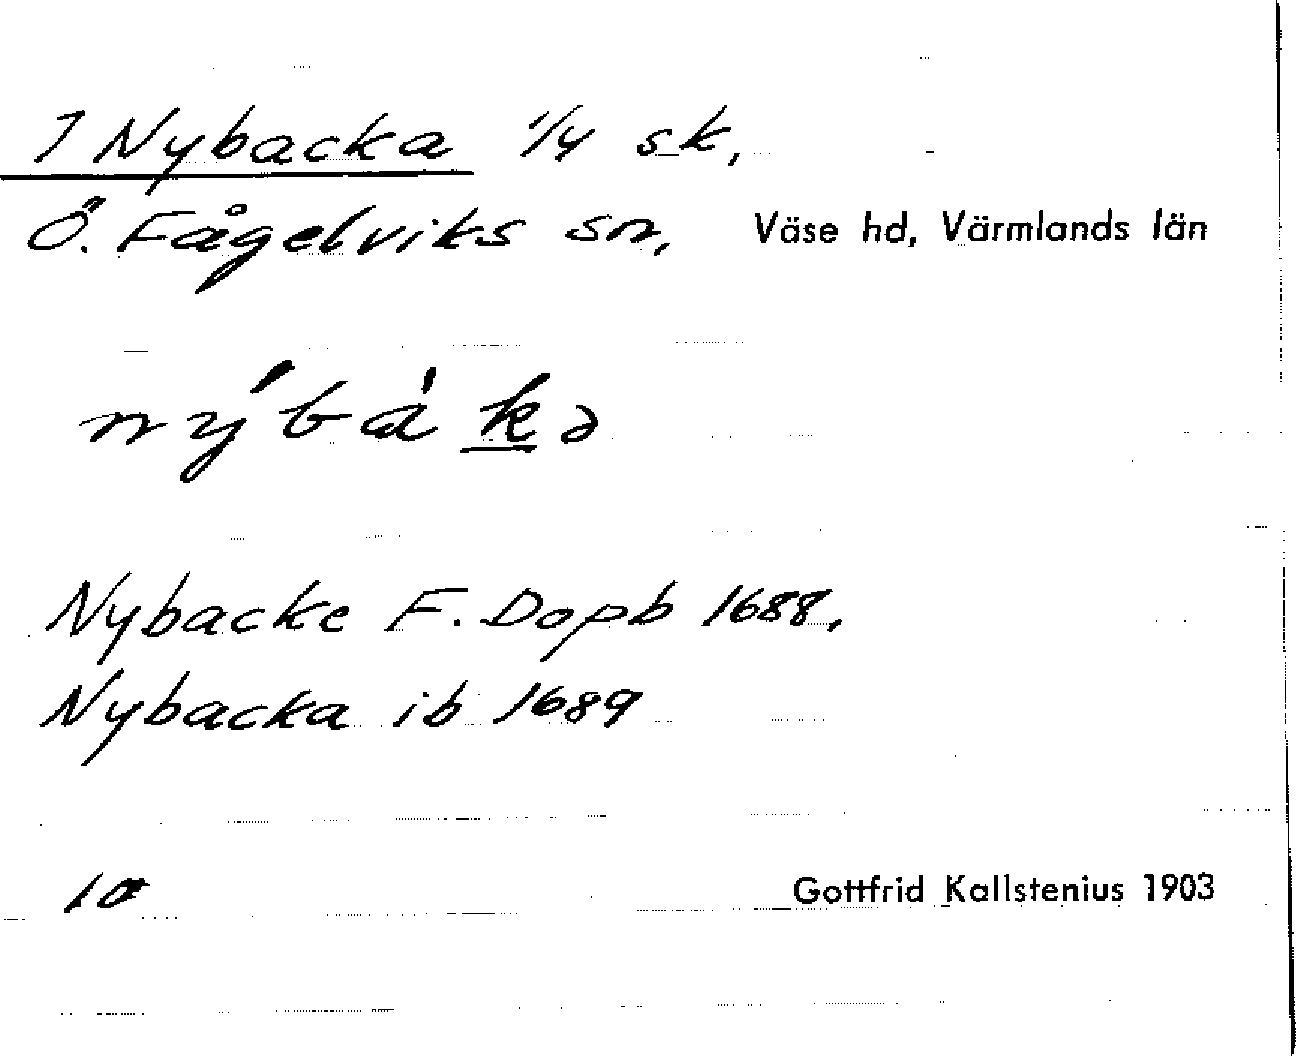 1 Nybacka 1/4 sk,
Ö. Fågelviks sn, Väse hd, Värmlands län
nýbàkə
Nybacke F. Dopb 1688,
Nybacka ib 1689
Gottfrid Kallstenius 1903